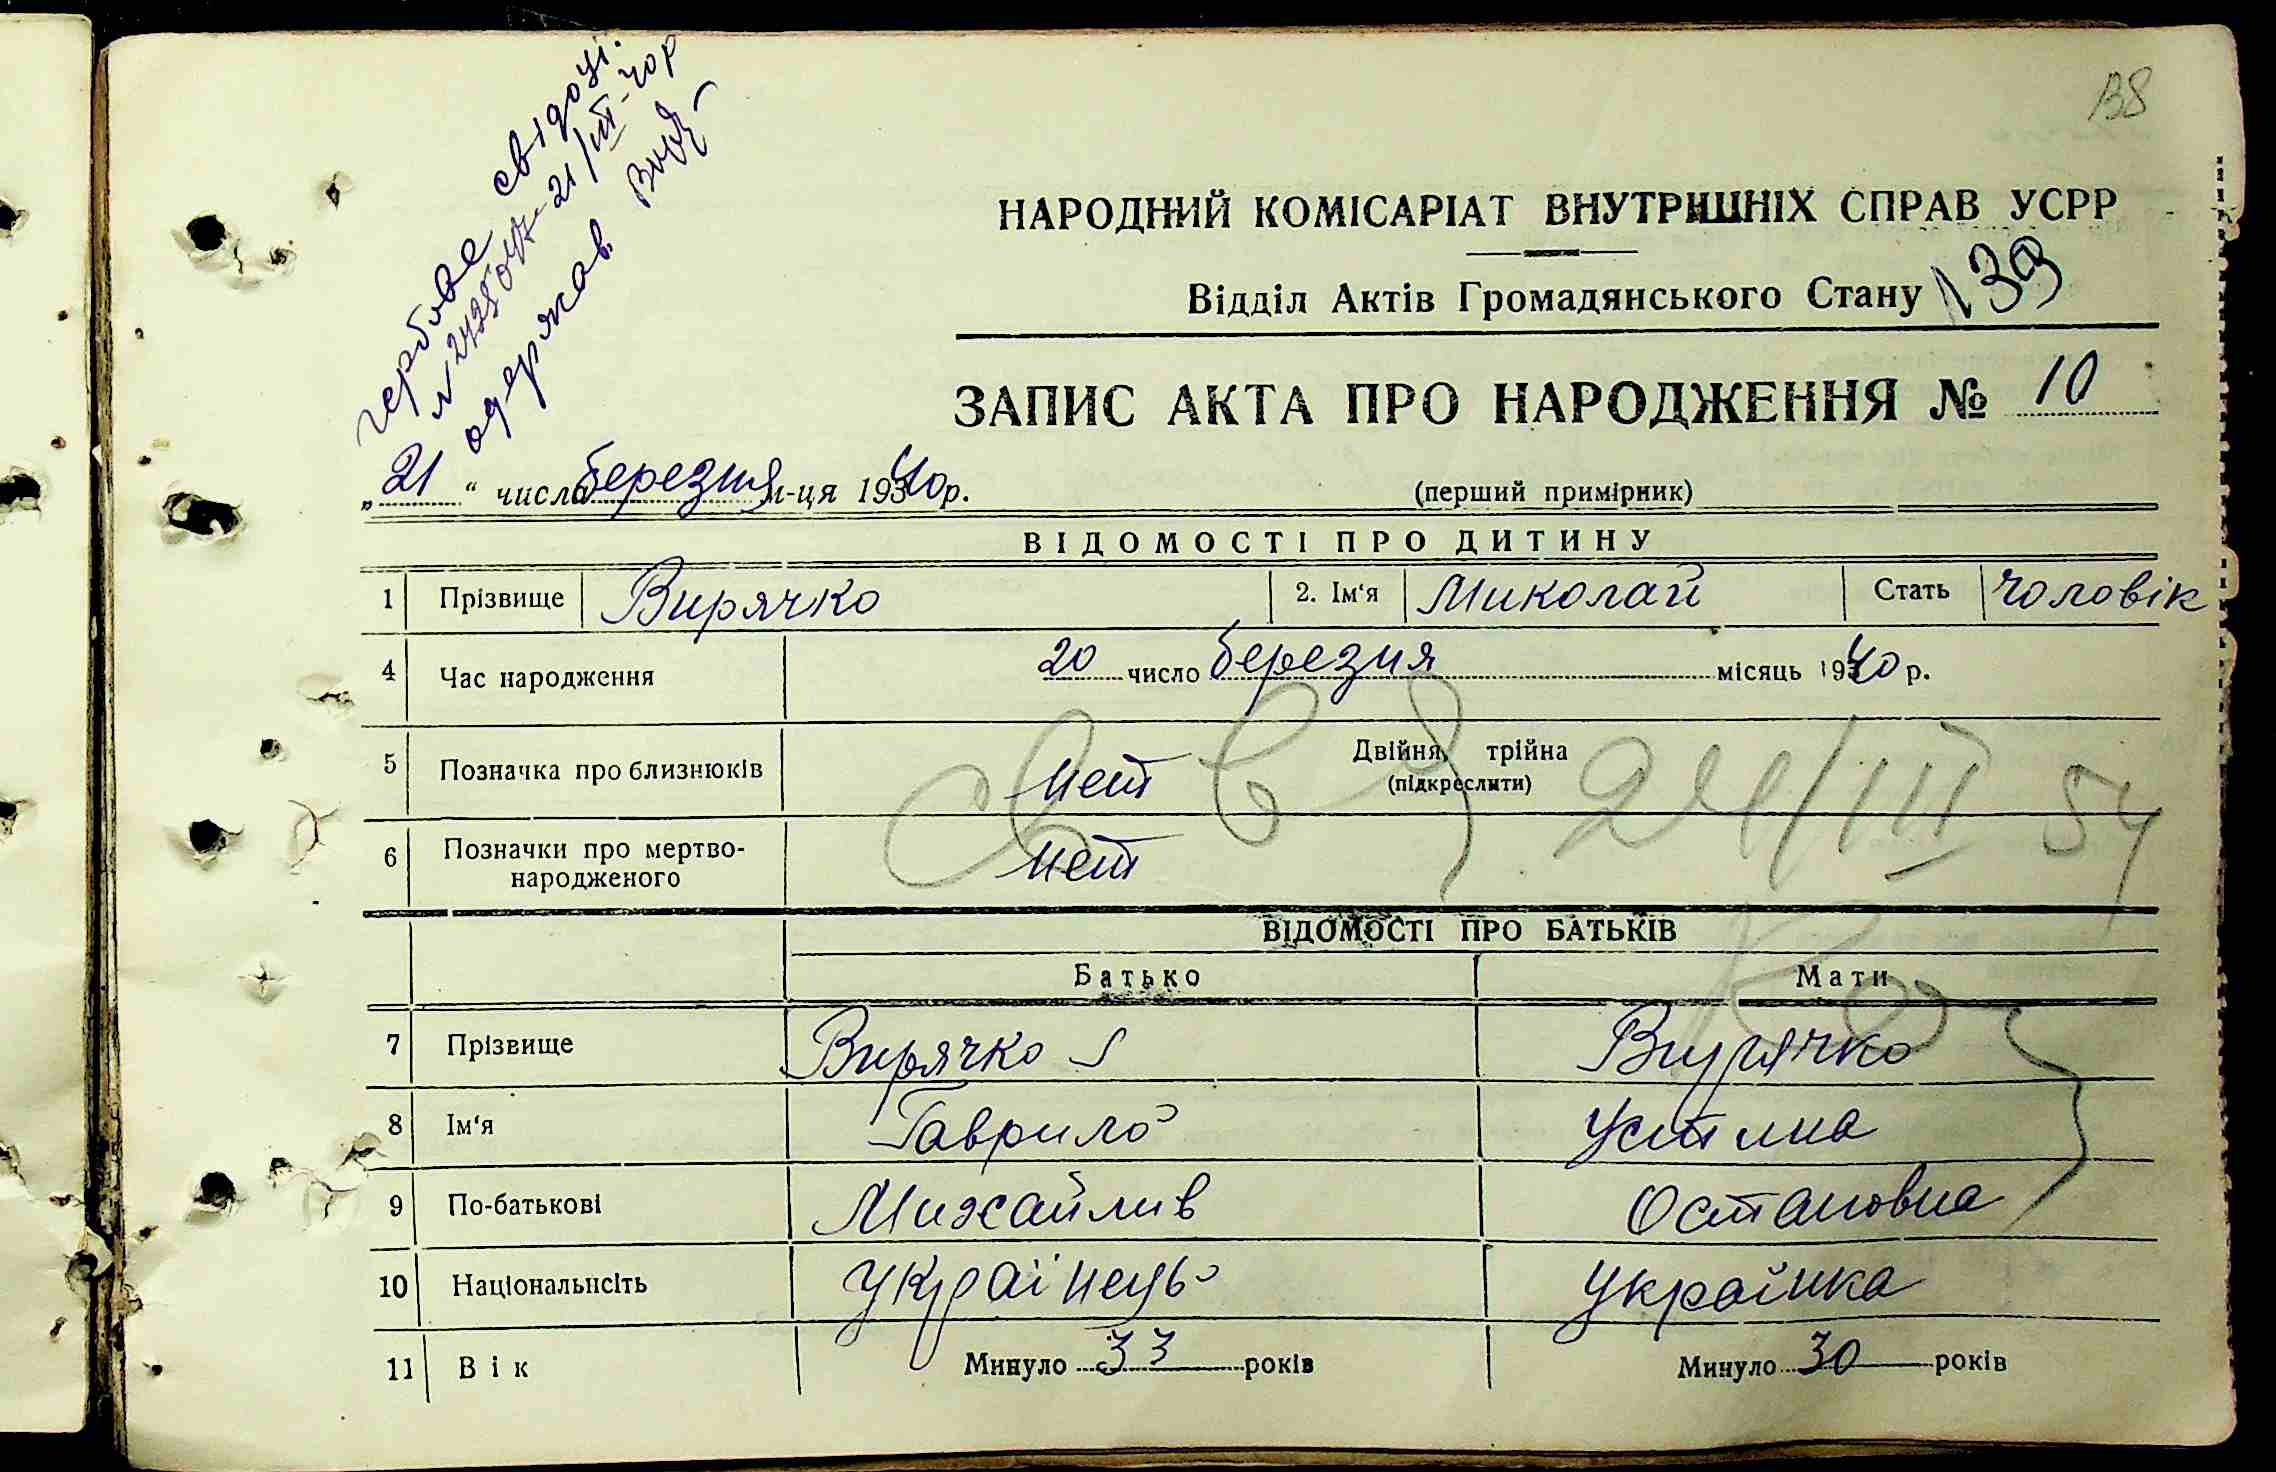 гербове свідоц.
21/III-40р
одержав.
138
НАРОДНИЙ КОМІСАРІАТ ВНУТРІШНІХ СПРАВ УСРР
Відділ Актів Громадянського Стану №39
ЗАПИС АКТА ПРО НАРОДЖЕННЯ № 10
„21“ числа березня м-ця 1940р.
(перший примірник)
ВІДОМОСТІ ПРО ДИТИНУ
1 Прізвище Вирячко 2. Ім'я Миколай Стать чоловік
4 Час народження 20 число березня місяць 1940 р.
5 Позначка про близнюків нет Двійня, трійна
(підкреслити)
21/III 54
6 Позначки про мертво-
народженого нет
ВІДОМОСТІ ПРО БАТЬКІВ
Батько Мати
7 Прізвище Вирячко Вирячко
8 Ім'я Гаврило Устина
9 По-батькові Михайлив Остаповна
10 Національнсіть Українець Українка
11 Вік Минуло 33 років Минуло 30 років